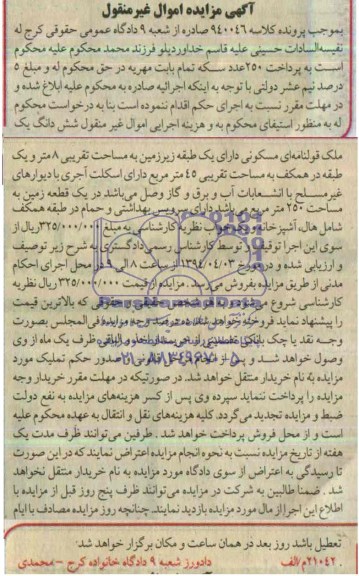 آگهی مزایده اموال غیرمنقول
بموجب پرونده کلاسه ۹۴۰۰۴۶ صادره از شعبه ۹ دادگاه عمومی حقوقی کرج له
نفیسه‌السادات حسینی علیه قاسم خداوردیلو فرزند محمد محکوم علیه محکوم
است به پرداخت ۲۵۰عدد سکه تمام بابت مهریه در حق محکوم له و مبلغ ۵
درصد نیم عشر دولتی با توجه به اینکه اجرائیه صادره به محکوم علیه ابلاغ شده و
در مهلت مقرر نسبت به اجرای حکم اقدام ننموده است بنا به درخواست محکوم
له به منظور استیفای محکوم به و هزینه اجرایی اموال غیر منقول شش دانگ یک
ملک قولنامه‌ای مسکونی دارای یک طبقه زیرزمین به مساحت تقریبی ۸متر و یک
طبقه در همکف به مساحت تقریبی ۴۵ متر مربع دارای اسکلت آجری با دیوارهای
غیرمسلح با انشعابات آب و برق و گاز وصل می‌باشد در یک قطعه زمین به
مساحت ۲۵۰ متر مربع می‌باشد دارای سرویس بهداشتی و حمام در طبقه همکف
شامل هال، آشپزخانه و نظریه کارشناسی به مبلغ ۳۲۵/۰۰۰/۰۰۰ریال از
سوی این اجرا توقیف و توسط کارشناس رسمی دادگستری به شرح زیر توصیف
و ارزیابی شده و در مورخ ۱۳۹۴/۰۴/۰۳ از ساعت ۸ الی ۹ در محل اجرای احکام
مدنی از طریق مزایده بفروش می‌رسد. مزایده از قیمت ۳۲۵/۰۰۰/۰۰۰ریال نظریه
کارشناسی شروع می حقوقی که بالاترین قیمت
را پیشنهاد نماید فروخته خواهد شد ده درصد وجه مزایده فی‌المجلس بصورت
وجه نقد یا چک بانکی ظرف یک ماه از وی
وصول خواهد شد صدور حکم تملیک مورد
مزایده به نام خریدار منتقل خواهد شد. در صورتیکه در مهلت مقرر خریدار وجه
مزایده را پرداخت ننماید سپرده وی پس از کسر هزینه‌های مزایده به نفع دولت
ضبط و مزایده تجدید می‌گردد. کلیه هزینه‌های نقل و انتقال به عهده محکوم علیه
است و از محل فروش پرداخت خواهد شد . طرفین می‌توانند ظرف مدت یک
هفته از تاریخ مزایده نسبت به نحوه انجام مزایده اعتراض نمایند که در این صورت
تا رسیدگی به اعتراض از سوی دادگاه مورد مزایده به نام خریدار منتقل نخواهد
شد . ضمنا طالبین به شرکت در مزایده می‌توانند ظرف پنج روز قبل از مزایده با
اطلاع این اجرا از مال مورد مزایده بازدید نمایند. چنانچه روز مزایده مصادف با ایام
تعطیل باشد روز بعد در همان ساعت و مکان برگزار خواهد شد.
۲۱۰۴۲/م/الف دادورز شعبه ۹ دادگاه خانواده کرج – محمدی
۰۲۱-۸۸۳۴۹۶۷۰-۵